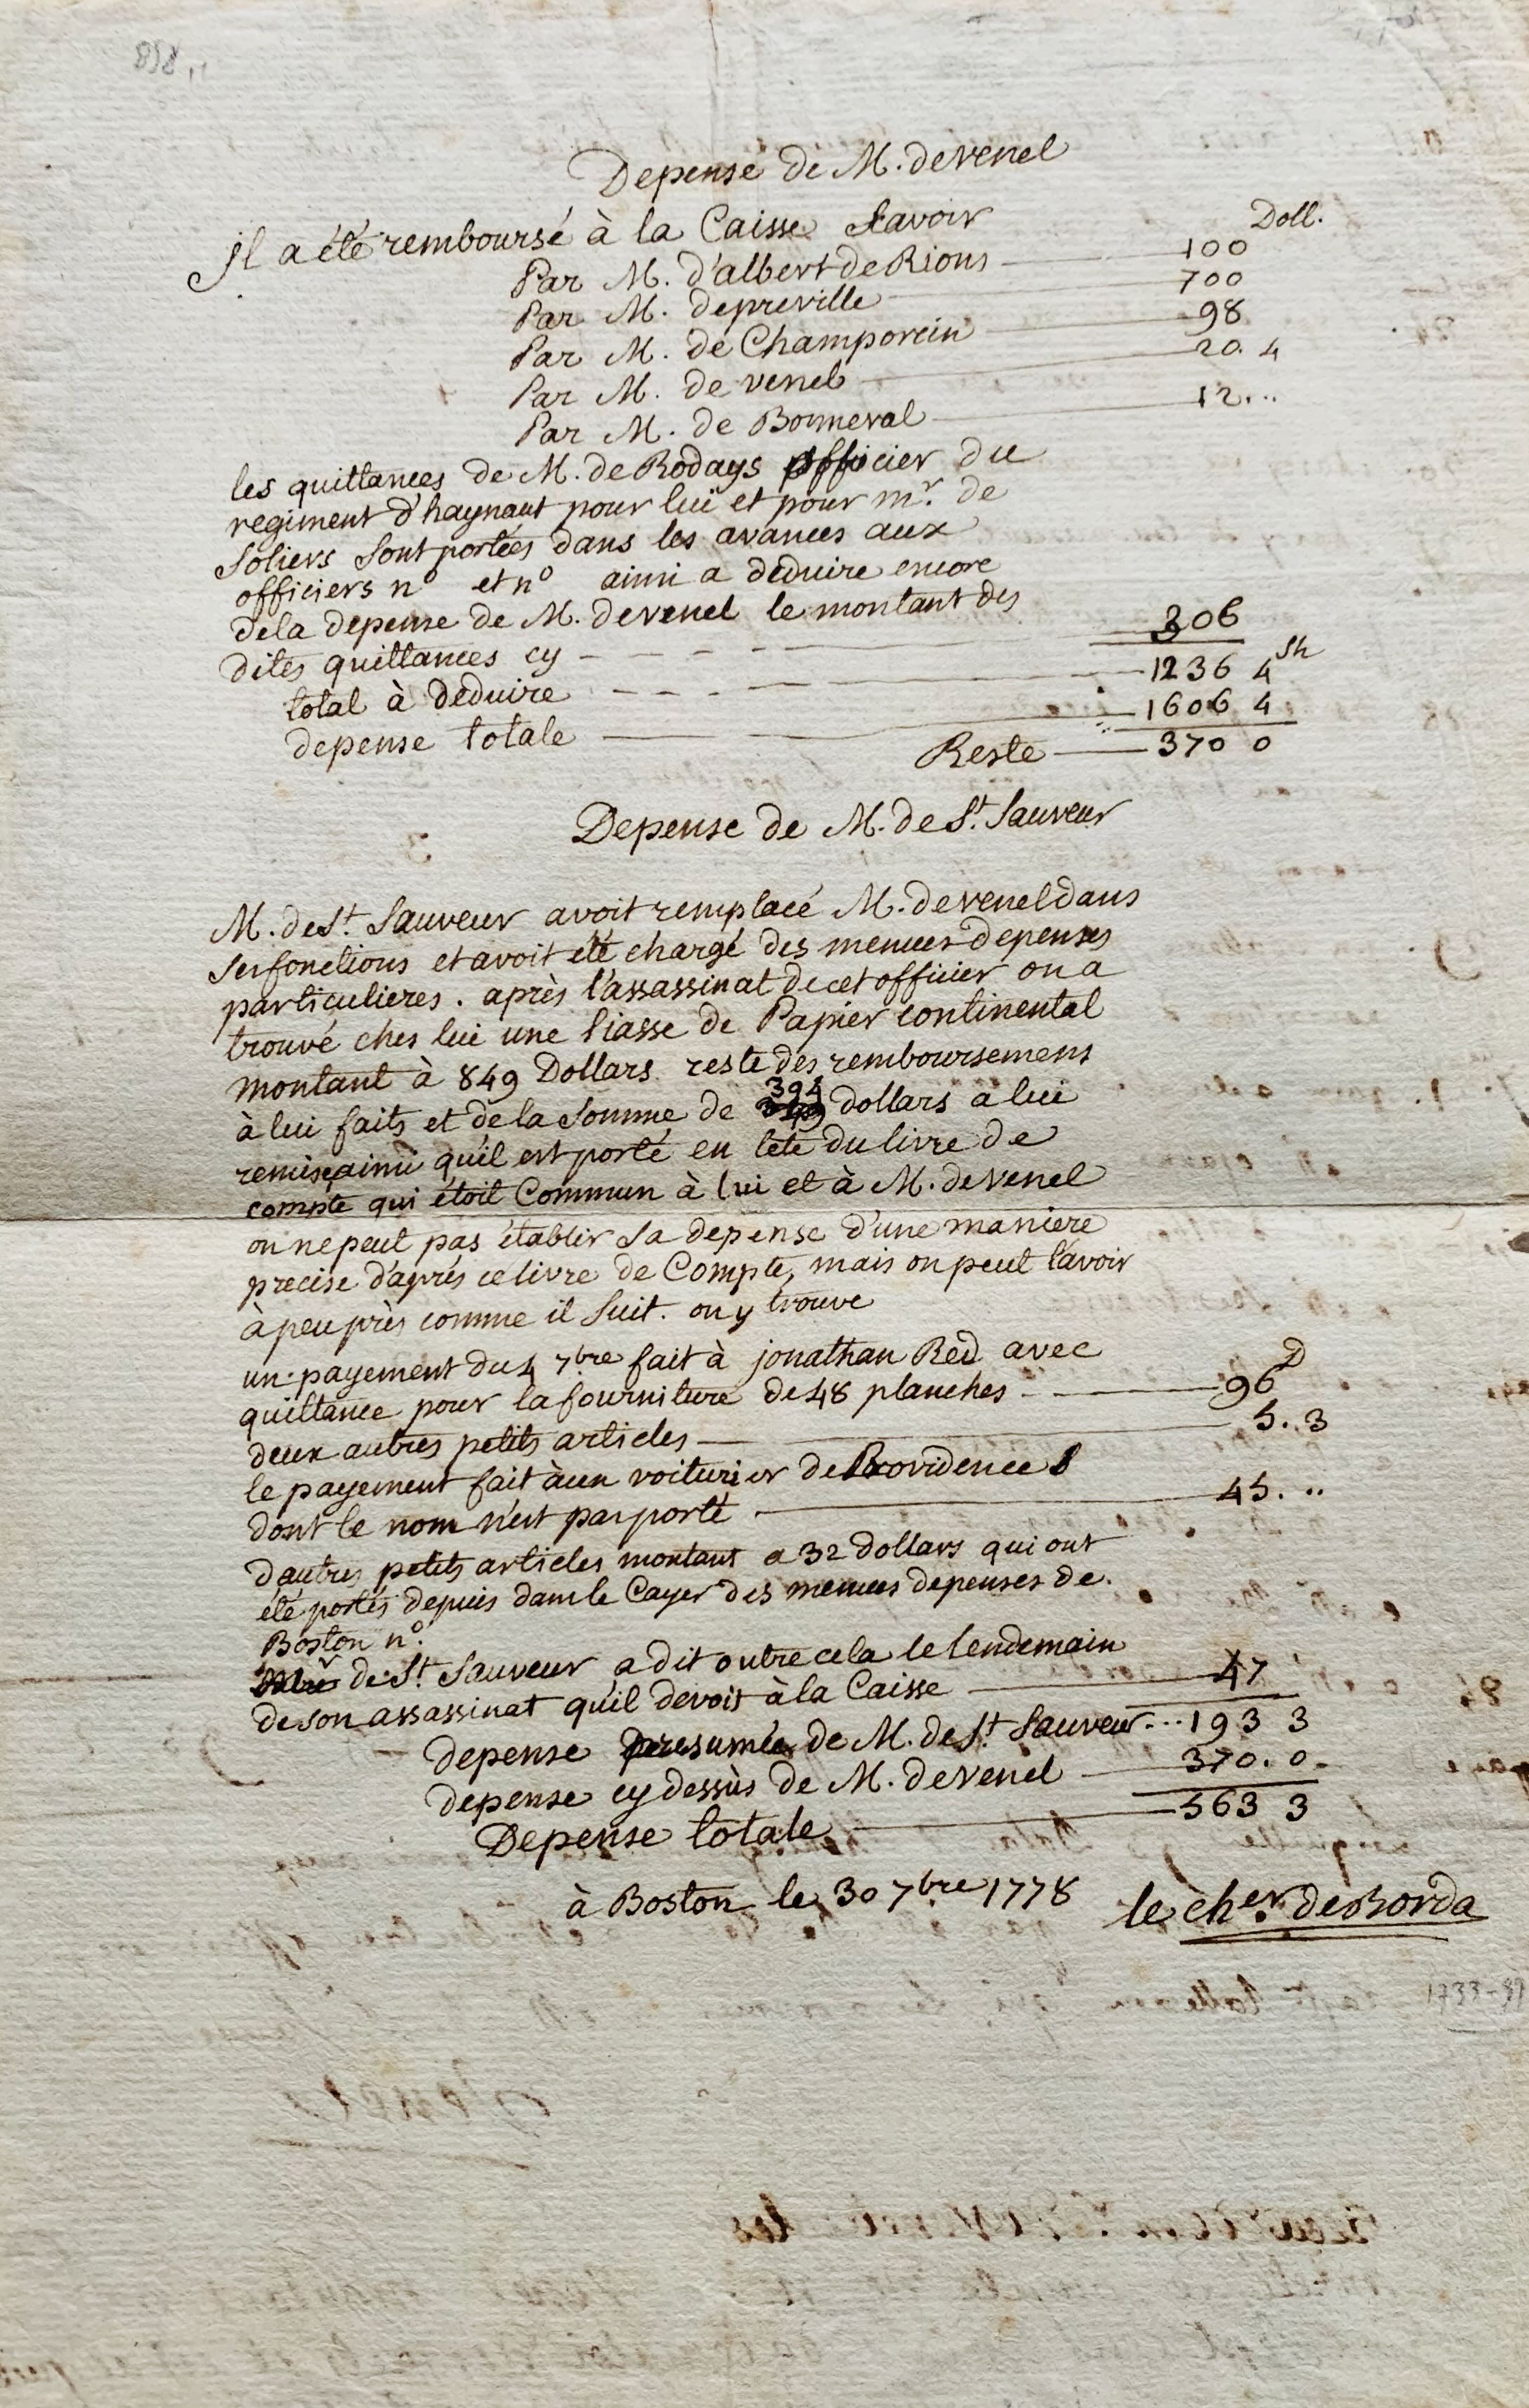 898,,
Depense de M. de venel
Doll.
jl a été remboursé à la Caisse Savoir
Par M. d'albert de Rions 100
Par M. de preville 700
Par M. de Champorcin 98
Par M. de venel 20. 4
Par M. de Bonneval 12...
les quittances de M. de Rodays officier du
regiment d'haynaut pour lui et pour mr. de
Soliers sont portées dans les avances aux
officiers no et no ainsi a deduire encore
de la depense de M. de venel le montant des
dites quittances cy 306
total à deduire 1236 4 Sh
depense totale 1606 4
Reste 370 0
Depense de M. de St. Sauveur
M. de St. Sauveur avoit remplacé M. de venel dans
ses fonctions et avoit été chargé des menues depenses
particulieres. après l'assassinat de cet officier on a
trouvé ches lui une liasse de Papier continental
montant à 849 Dollars reste des remboursemens
à lui faits et de la somme de 394 dollars a lui
remise ainsi qu'il est porté en tete du livre de
compte qui étoit Commun à lui et à M. de venel
on ne peut pas établir sa depense d'une maniere
precise d'aprés ce livre de Compte, mais on peut l'avoir
à peu près comme il suit. on y trouve
un payement du 4 7bre fait à jonathan Red avec
quittance pour la fourniture de 48 planches 96 D
deux autres petits articles 5..3
le payement fait à un voiturier de Providence
dont le nom n'est pas porté 45. ..
d'autres petits articles montant a 32 dollars qui ont
été portés depuis dans le Cayer des menues depenses de
Boston no.
Mr de St. Sauveur a dit outre cela le lendemain
de son assassinat qu'il devoit à la Caisse 47
depense presumée de M. de St Sauveur...193 3
depense cy dessus de M. de venel 370. 0.
Depense totale 563 3
à Boston le 30 7bre 1778
le cher. de Borda
1733-99